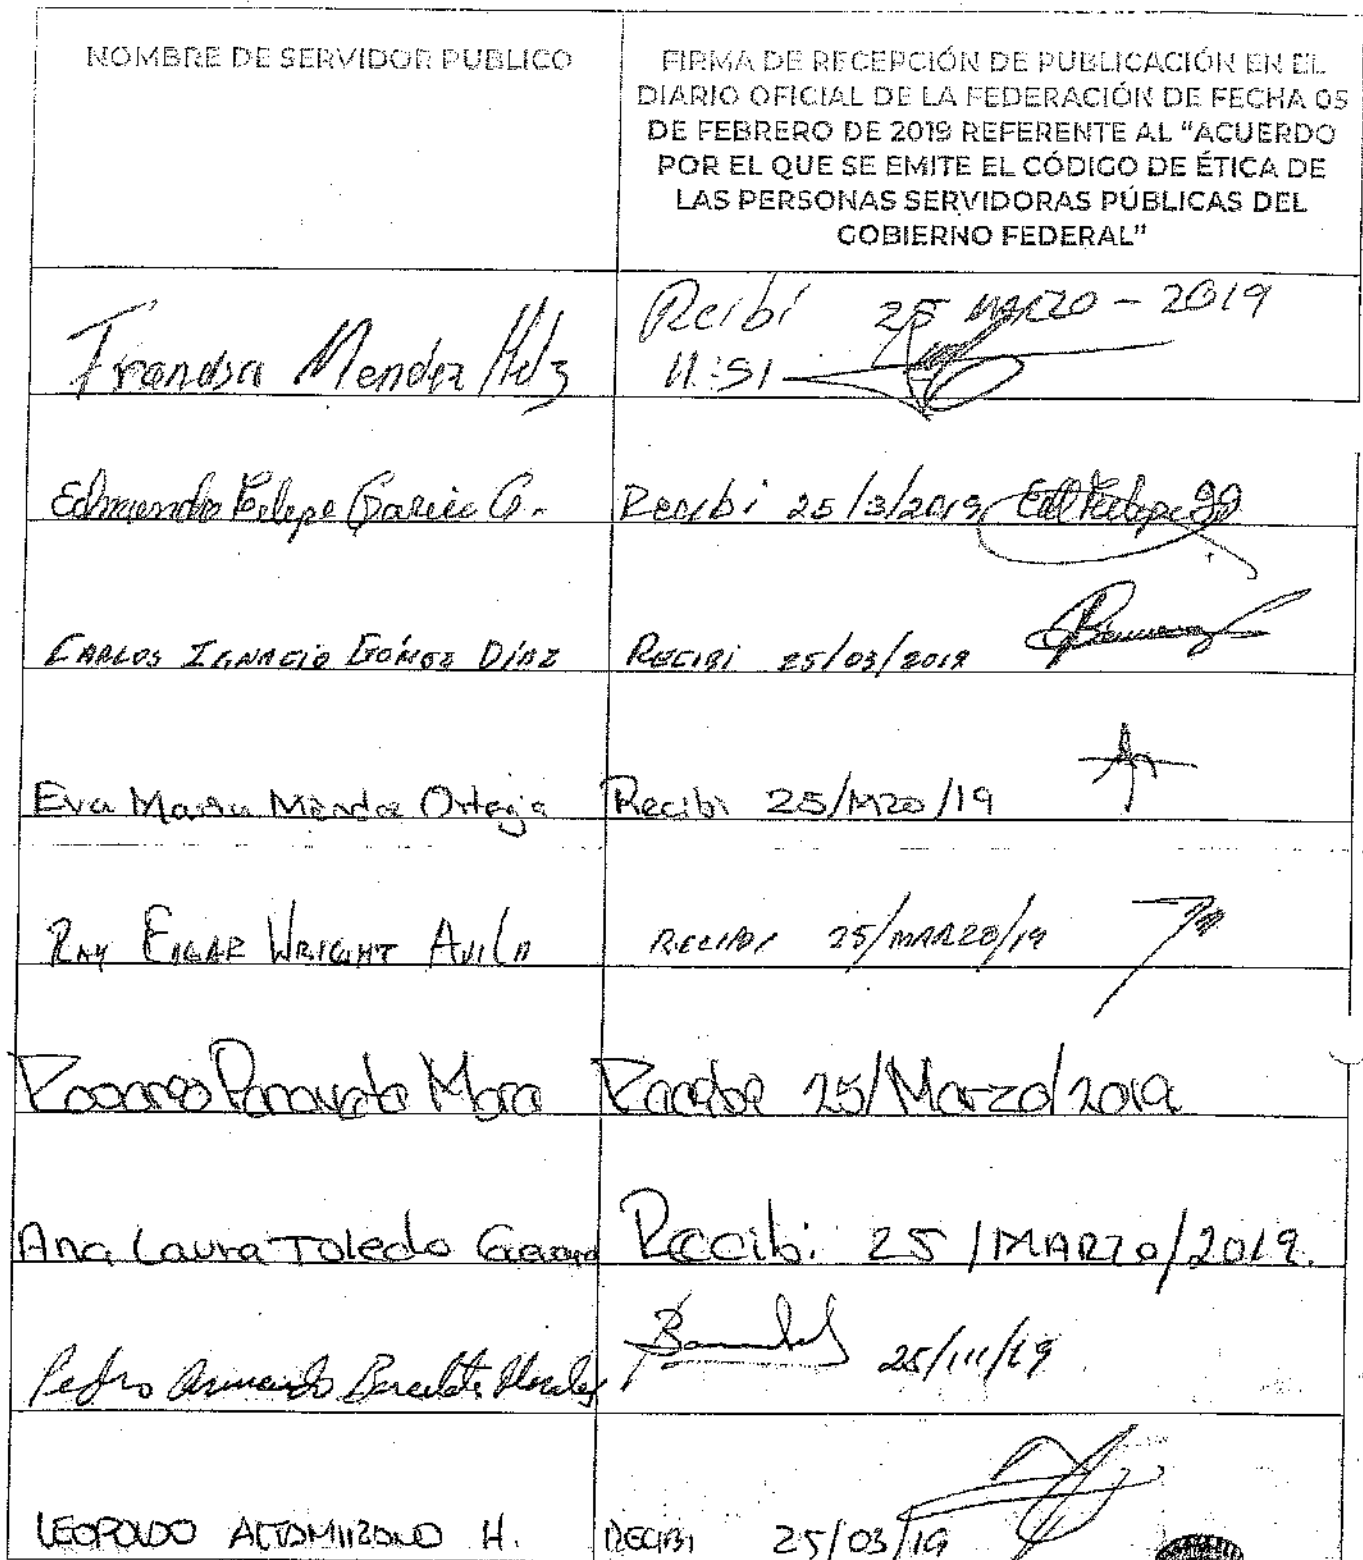 NOMBRE DE SERVIDOR PUBLICO
FIRMA DE RECEPCIÓN DE PUBLICACIÓN EN EL
DIARIO OFICIAL DE LA FEDERACIÓN DE FECHA 05
DE FEBRERO DE 2019 REFERENTE AL "ACUERDO
POR EL QUE SE EMITE EL CÓDIGO DE ÉTICA DE
LAS PERSONAS SERVIDORAS PÚBLICAS DEL
GOBIERNO FEDERAL"
Mendez Hdz
Recibí 25 MARZO - 2019
11:51
Edmundo Felipe Garcia G.
Recibi 25/3/2019
CARLOS IGNACIO GÓMEZ DÍAZ
RECIBI 25/03/2019
Eva Maria Méndez Ortega
Recibi 25/Mzo/19
RAY EDGAR WRIGHT AVILA
RECIBI 25/MARZO/19
Mora
25/Marzo/2019
Ana Laura Toledo
Recibi: 25/MARZO/2019.
Pedro Armando Morales
25/III/19
LEOPOLDO ALTAMIRANO H.
RECIBI 25/03/19